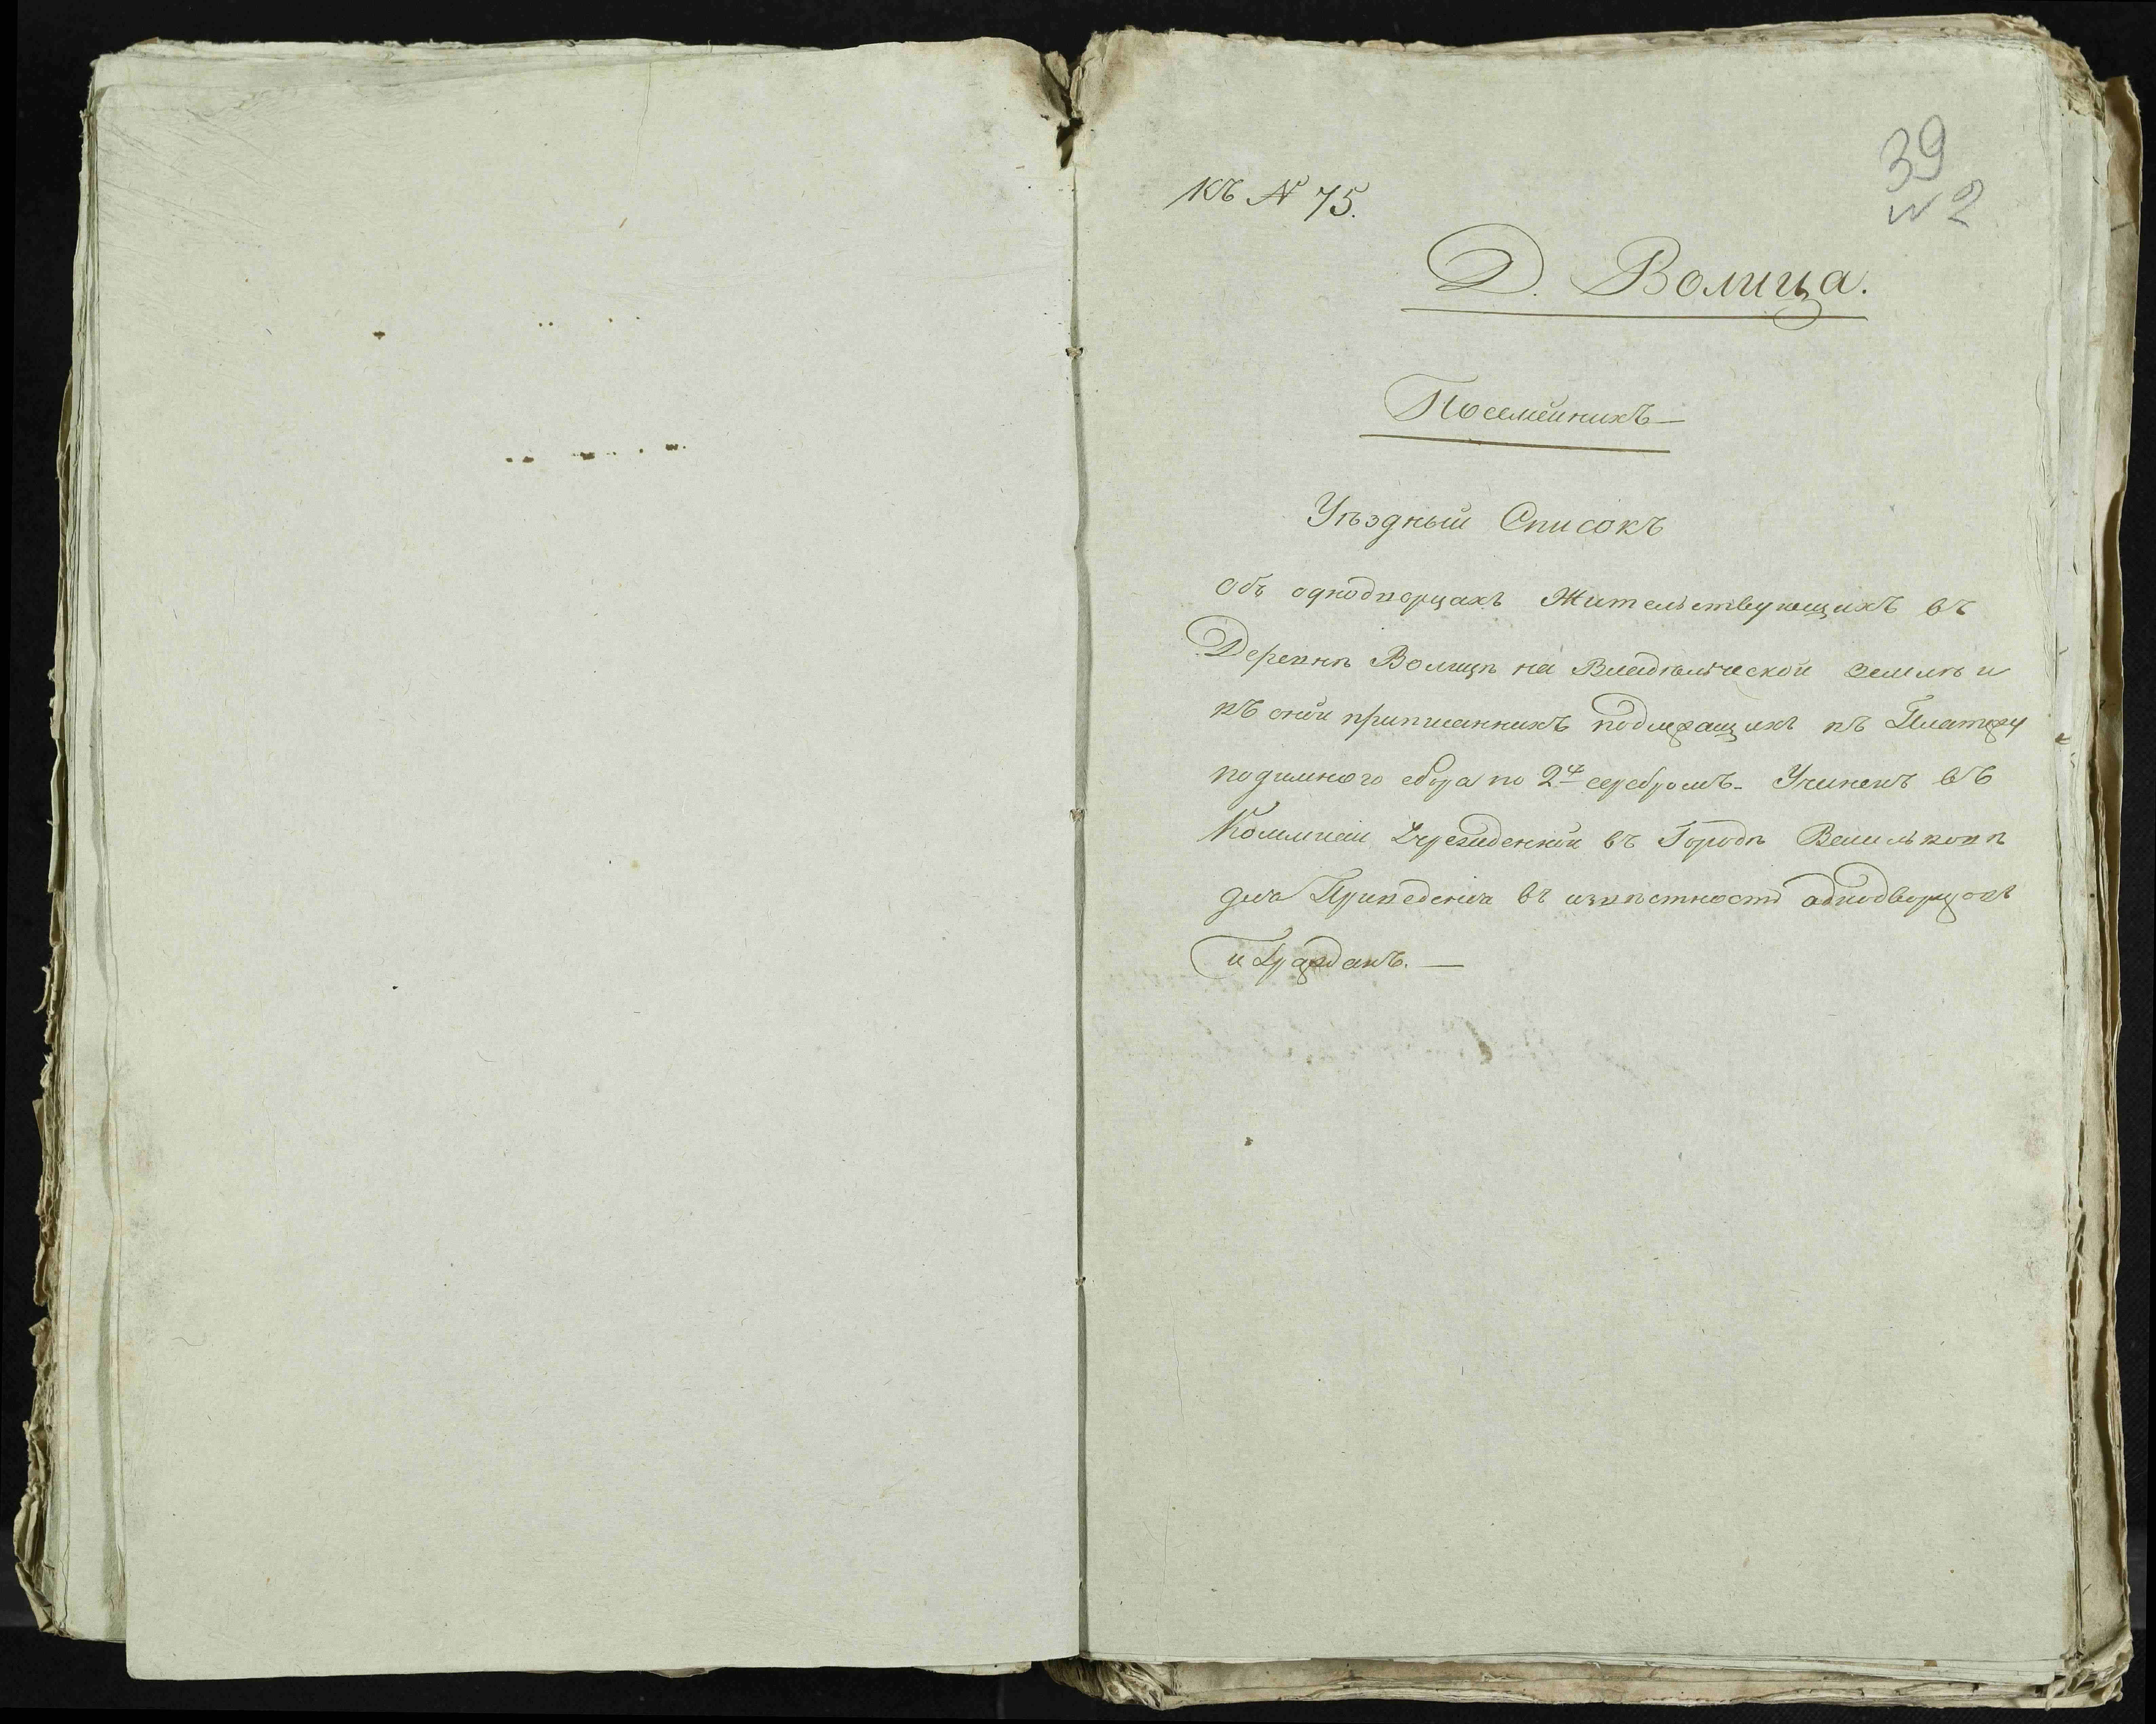 39
№ 2
Къ № 75.
Д. Волица.
Посемейникъ
Уѣздный Списокъ
Объ однодворцахъ Жительствующихъ въ
Деревнѣ Волицѣ на Владѣльческой землѣ и
къ оной приписанныхъ подлежащихъ къ Платежу
подымного сбора по 2 серебромъ. Учиненъ въ
Коммисіи Учрежденной въ Городѣ Васильковѣ
для Приведенія въ извѣстность однодворцовъ
и Гражданъ.